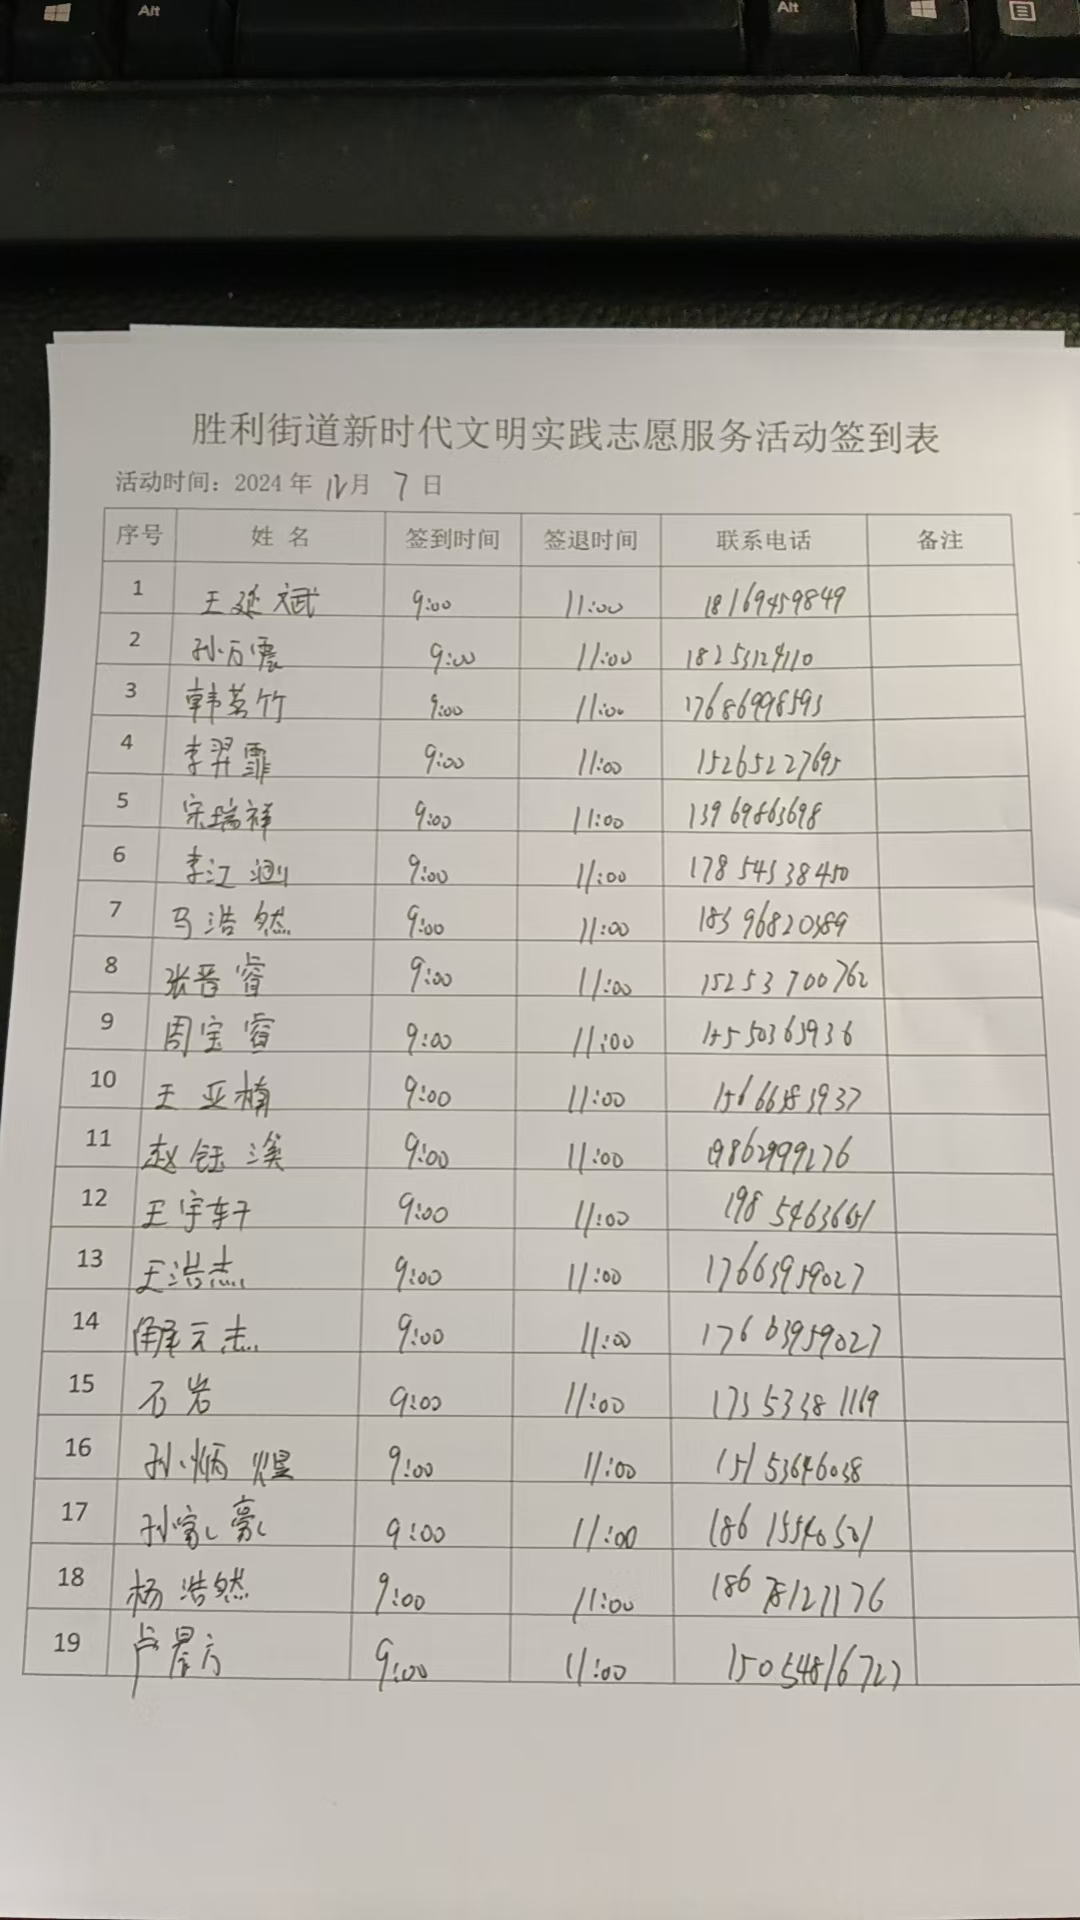 Alt
Alt
胜利街道新时代文明实践志愿服务活动签到表
活动时间：2024 年 12月 7 日
序号 姓 名 签到时间 签退时间 联系电话 备注
1 王延斌 9:00 11:00 18169459849
2 孙万震 9:00 11:00 18253124110
3 韩茗竹 9:00 11:00 17686998593
4 李羿霏 9:00 11:00 15265227695
5 宋瑞祥 9:00 11:00 13969863698
6 李江 9:00 11:00 17854538450
7 马浩然 9:00 11:00 18396820389
8 张晋睿 9:00 11:00 15253700762
9 周宝睿 9:00 11:00 15550363936
10 王亚楠 9:00 11:00 15666383937
11 赵钰溪 9:00 11:00 19862999276
12 王宇轩 9:00 11:00 19854636651
13 王浩志 9:00 11:00 17663959027
14 解云志 9:00 11:00 17663959027
15 石岩 9:00 11:00 17353381169
16 孙炳煜 9:00 11:00 15153646038
17 孙家豪 9:00 11:00 18615540501
18 杨浩然 9:00 11:00 18678127176
19 卢晨方 9:00 11:00 15054816727